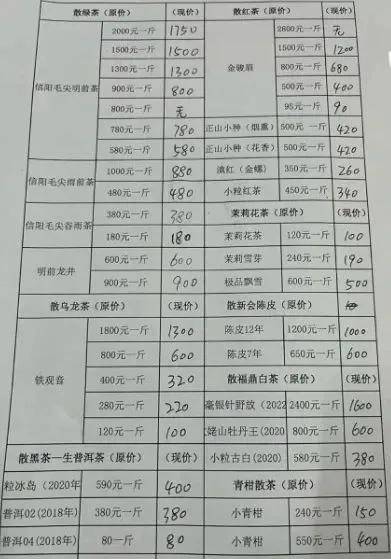 散绿茶（原价） （现价） 散红茶（原价） （现价）
信阳毛尖明前茶 2000元一斤 1750 金骏眉 2800元一斤 无
1500元一斤 1500 1500元一斤 1200
1300元一斤 1300 800元一斤 680
900元一斤 800 500元一斤 400
800元一斤 无 95元一斤 90
780元一斤 780 正山小种（烟熏） 500元一斤 420
580元一斤 580 正山小种（花香） 500元一斤 420
信阳毛尖雨前茶 1000元一斤 880 滇红（金螺） 350元一斤 260
480元一斤 480 小粒红茶 450元一斤 340
信阳毛尖谷雨茶 380元一斤 380 茉莉花茶（原价） （现价）
180元一斤 180 茉莉花茶 120元一斤 100
明前龙井 600元一斤 600 茉莉雪芽 240元一斤 190
900元一斤 900 极品飘雪 600元一斤 500
散乌龙茶（原价） （现价） 散新会陈皮（原价）
铁观音 1800元一斤 1300 陈皮12年 1200元一斤 1000
800元一斤 600 陈皮7年 650元一斤 600
400元一斤 320 散福鼎白茶（原价） （现价）
280元一斤 220 毫银针野放（2022 2400元一斤 1600
120元一斤 100 姥山牡丹王(2020 800元一斤 600
散黑茶一生普洱茶（原价） （现价） 小粒古白(2020) 580元一斤 380
粒冰岛（2020年 590元一斤 400 青柑散茶（原价） （现价）
普洱02(2018年) 380元一斤 380 小青柑 240元一斤 150
普洱04(2018年) 80一斤 80 小青柑 550元一斤 400